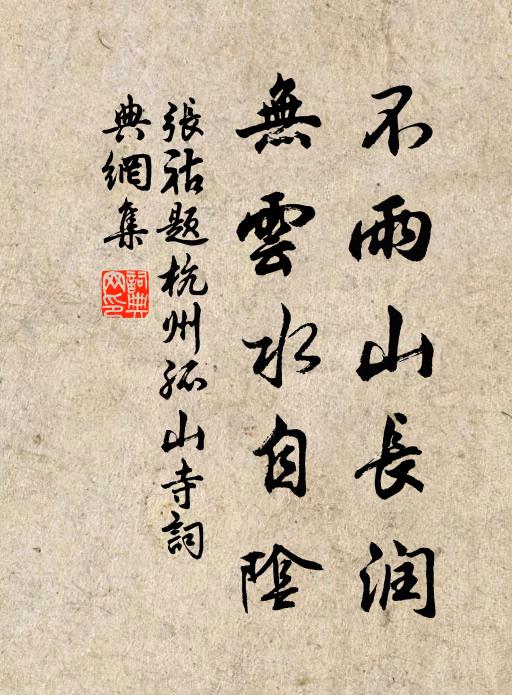 不雨山長润
無雲水自陰
張祜题杭州孤山寺詞
典網集
詞典网印